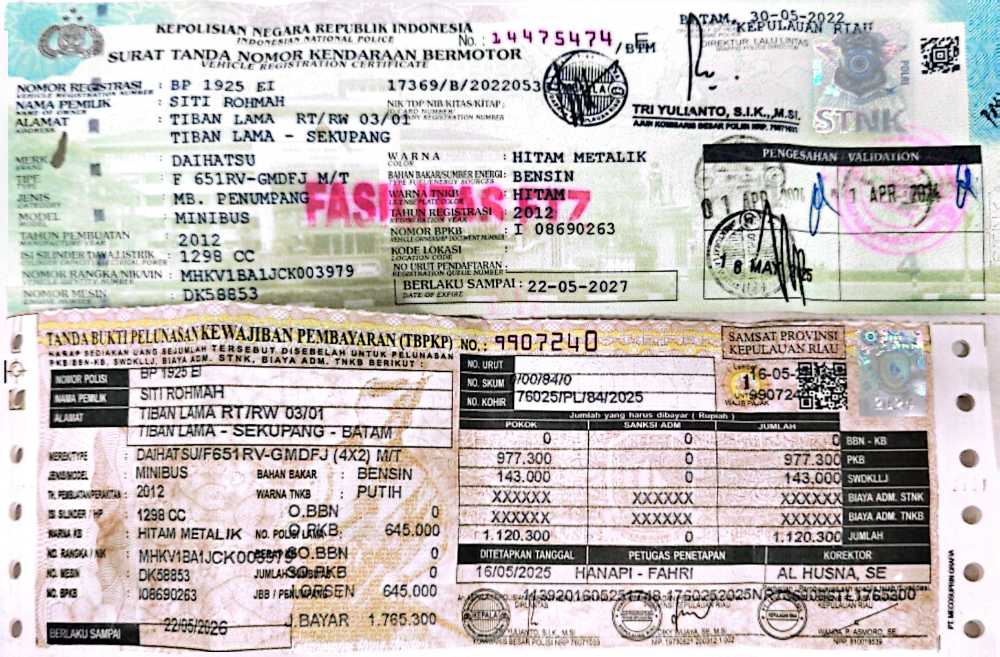 KEPOLISIAN NEGARA REPUBLIK INDONESIA
INDONESIAN NATIONAL POLICE
No. : 14475474 /BTM
SURAT TANDA NOMOR KENDARAAN BERMOTOR
VEHICLE REGISTRATION CERTIFICATE
BATAM, 30-05-2022
KEPULAUAN RIAU
DIREKTUR LALU LINTAS
NOMOR REGISTRASI : BP 1925 EI
17369/B/2022053
NAMA PEMILIK : SITI ROHMAH
NIK TDP NIB/KITAS/KITAP :
ALAMAT : TIBAN LAMA RT/RW 03/01
ADDRESS
TIBAN LAMA - SEKUPANG
TRI YULIANTO, S.I.K., M.SI.
STNK
POLRI
MERK : DAIHATSU
WARNA : HITAM METALIK
COLOR
TIPE : F 651RV-GMDFJ M/T
BAHAN BAKAR/SUMBER ENERGI : BENSIN
JENIS : MB. PENUMPANG
WARNA TNKB : HITAM
MODEL : MINIBUS
TAHUN REGISTRASI : 2012
REGISTRATION YEAR
TAHUN PEMBUATAN : 2012
MANUFACTURE YEAR
NOMOR BPKB : I 08690263
ISI SILINDER/DAYA LISTRIK : 1298 CC
KODE LOKASI :
LOCATION CODE
NOMOR RANGKA/NIK/VIN : MHKV1BA1JCK003979
NO URUT PENDAFTARAN :
REGISTRATION QUEUE NUMBER
NOMOR MESIN : DK58853
BERLAKU SAMPAI : 22-05-2027
DATE OF EXPIRE
PENGESAHAN / VALIDATION
TANDA BUKTI PELUNASAN KEWAJIBAN PEMBAYARAN (TBPKP) NO.: 9907240
HARAP SEDIAKAN UANG SEJUMLAH TERSEBUT DISEBELAH UNTUK PELUNASAN
PKB BEN-KB, SWDKLLJ, BIAYA ADM. STNK, BIAYA ADM. TNKB BERIKUT :
SAMSAT PROVINSI
KEPULAUAN RIAU
NOMOR POLISI BP 1925 EI
NAMA PEMILIK SITI ROHMAH
ALAMAT TIBAN LAMA RT/RW 03/01
TIBAN LAMA - SEKUPANG - BATAM
NO. URUT
NO. SKUM 0/00/84/0
NO. KOHIR 76025/PL/84/2025
Jumlah yang harus dibayar ( Rupiah )
POKOK SANKSI ADM JUMLAH
0 0 0 BBN - KB
977.300 0 977.300 PKB
143.000 0 143.000 SWDKLLJ
XXXXXX XXXXXX XXXXXX BIAYA ADM. STNK
XXXXXX XXXXXX XXXXXX BIAYA ADM. TNKB
1.120.300 0 1.120.300 JUMLAH
MEREK/TYPE : DAIHATSU/F651RV-GMDFJ (4X2) M/T
JENIS/MODEL : MINIBUS BAHAN BAKAR : BENSIN
TH. PEMBUATAN/PERAKITAN : 2012 WARNA TNKB : PUTIH
ISI SILINDER / HP : 1298 CC O.BBN 0
WARNA KB : HITAM METALIK NO. POLISI LAMA O.PKB 645.000
NO. RANGKA / NIK : MHKV1BA1JCK003979 SO.BBN 0
NO. MESIN : DK58853 SO.PKB 0
NO. BPKB : I08690263 OPSEN 645.000
BERLAKU SAMPAI : 22/05/2026 J.BAYAR : 1.765.300
DITETAPKAN TANGGAL PETUGAS PENETAPAN KOREKTOR
16/05/2025 HANAPI - FAHRI AL HUSNA, SE